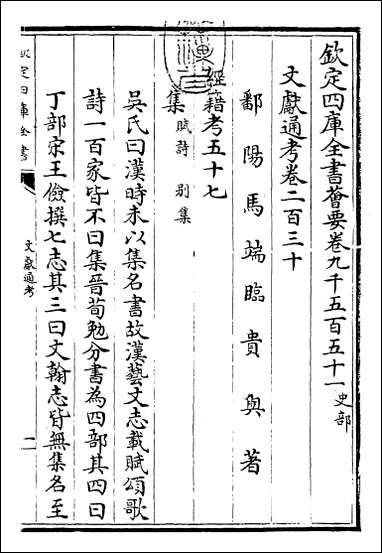 欽定四庫全書薈要卷九千五百五十一 史部
文獻通考卷二百三十
鄱陽馬端臨貴與著
經籍考五十七
集 賦詩 別集
吳氏曰漢時未以集名書故漢藝文志載賦頌歌
詩一百家皆不曰集晉荀勉分書為四部其四曰
丁部宋王儉撰七志其三曰文翰志皆無集名至
欽定四庫全書
文獻通考